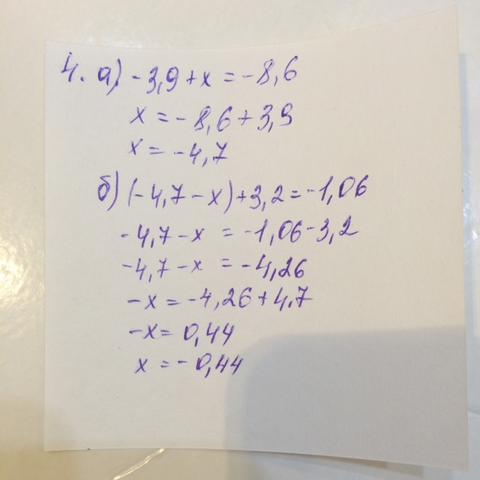 4. а) -3,9+x=-8,6
x=-8,6+3,9
x=-4,7
б) (-4,7-x)+3,2=-1,06
-4,7-x=-1,06-3,2
-4,7-x=-4,26
-x=-4,26+4,7
-x=0,44
x=-0,44